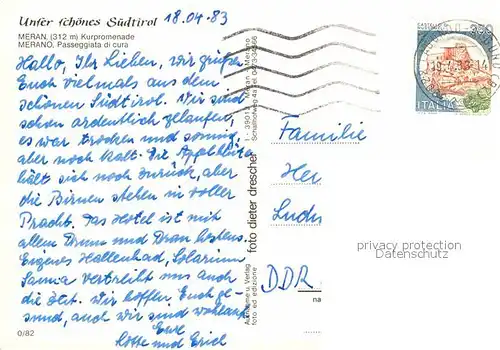 Unser schönes Südtirol
18.04.83
MERAN, (312 m) Kurpromenade
MERANO, Passeggiata di cura
Hallo, Ihr Lieben, wir grüßen
Euch vielmals aus dem
schönen Südtirol. Wir sind
schon ordentlich gelaufen,
es war trocken und sonnig,
aber noch kalt. Die Apfelblüte
hält sich noch zurück, aber
die Birnen stehen in voller
Pracht. Das Hotel ist mit
allem Drum und Dran bestens.
Eigenes Hallenbad, Solarium
Sauna vertreibt uns auch
die Zeit. Wir hoffen, Euch ge-
sund, auch wir sind wohlauf
Eure
Lotte und Erich
0/82
foto dieter drescher
Aufnahme u. Verlag
foto ed edizione
I - 39012 Meran - Merano
Familie
Her
Luchs
DDR
na
ITALIA
privacy protection
Datenschutz